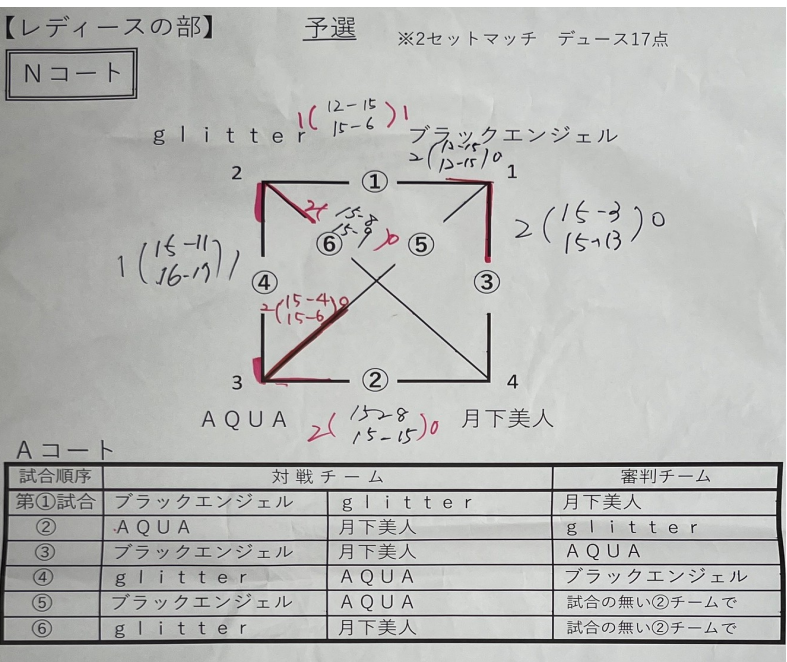 【レディースの部】 予選 ※2セットマッチ デュース17点
Nコート
glitter 1(12-15 15-6)1 ブラックエンジェル
2(12-15 12-15)0
2 ① 1
2(15-8 15-9)0
⑥ ⑤
2(15-3 15-13)0
1(15-11 16-17)1
④ ③
2(15-4 15-6)0
3 ② 4
AQUA 2(15-8 15-15)0 月下美人
Aコート
試合順序 対戦チーム 審判チーム
第①試合 ブラックエンジェル glitter 月下美人
② AQUA 月下美人 glitter
③ ブラックエンジェル 月下美人 AQUA
④ glitter AQUA ブラックエンジェル
⑤ ブラックエンジェル AQUA 試合の無い②チームで
⑥ glitter 月下美人 試合の無い②チームで